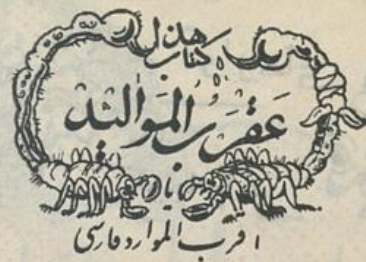 هذا کتاب
عقرب الموالید
یا
اقرب الموارد فارسی